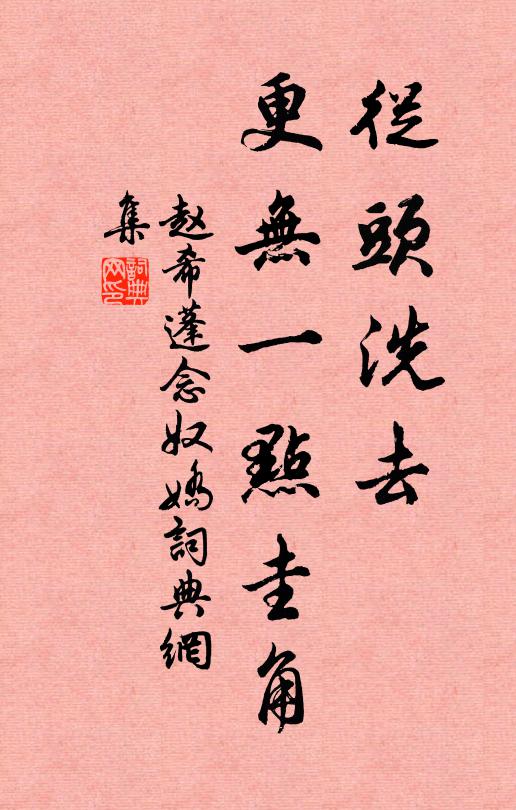 從頭洗去
更無一點圭角
赵希蓬念奴嬌詞典網
集
詞典网印